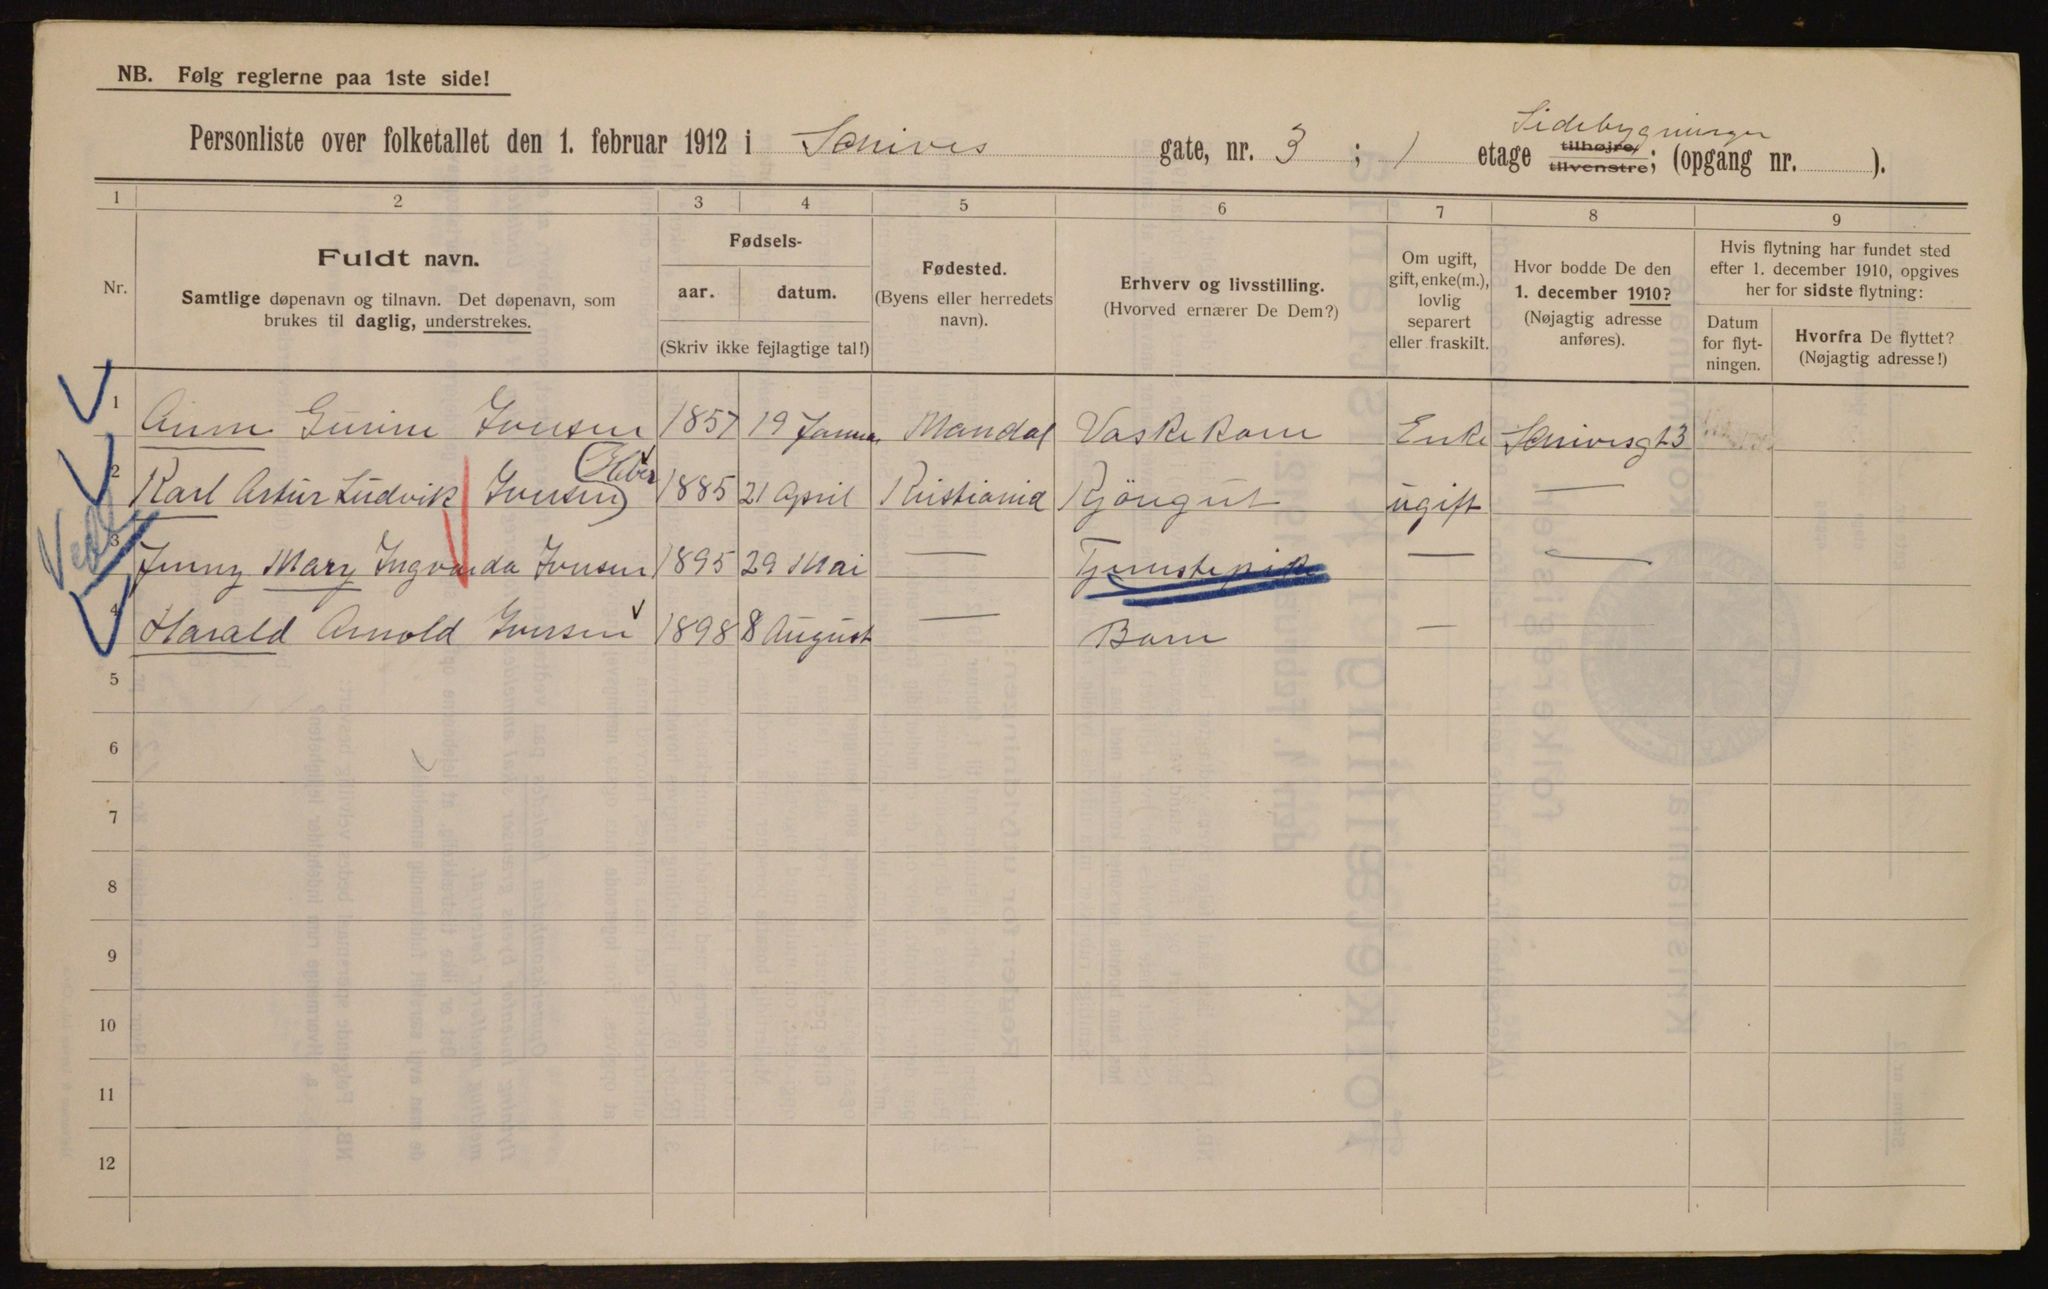 NB. Følg reglerne paa 1ste side!
Personliste over folketallet den 1. februar 1912 i Schives gate, nr. 3 ; 1 etage tilhøjre, tilvenstre; Sidebygninger (opgang nr. ).
1 2 3 4 5 6 7 8 9
Nr.
Fuldt navn.
Samtlige døpenavn og tilnavn. Det døpenavn, som
brukes til daglig, understrekes.
Fødsels-
aar. datum.
(Skriv ikke fejlagtige tal!)
Fødested.
(Byens eller herredets
navn).
Erhverv og livsstilling.
(Hvorved ernærer De Dem?)
Om ugift,
gift, enke(m.),
lovlig
separert
eller fraskilt.
Hvor bodde De den
1. december 1910?
(Nøjagtig adresse
anføres).
Hvis flytning har fundet sted
efter 1. december 1910, opgives
her for sidste flytning:
Datum
for flyt-
ningen.
Hvorfra De flyttet?
(Nøjagtig adresse!)
1 Anne Gurine Iversen 1857 19 Januar Mandal Vaskekone Enke Schivesgt 3
2 Karl Artur Ludvik Iversen 1885 21 April Kristiania Kjöregut ugift —
3 Jenny Mary Ingvarda Iversen 1895 29 Mai — Tjenestepike — —
4 Harald Arnold Iversen 1898 8 August — Barn — —
5
6
7
8
9
10
11
12